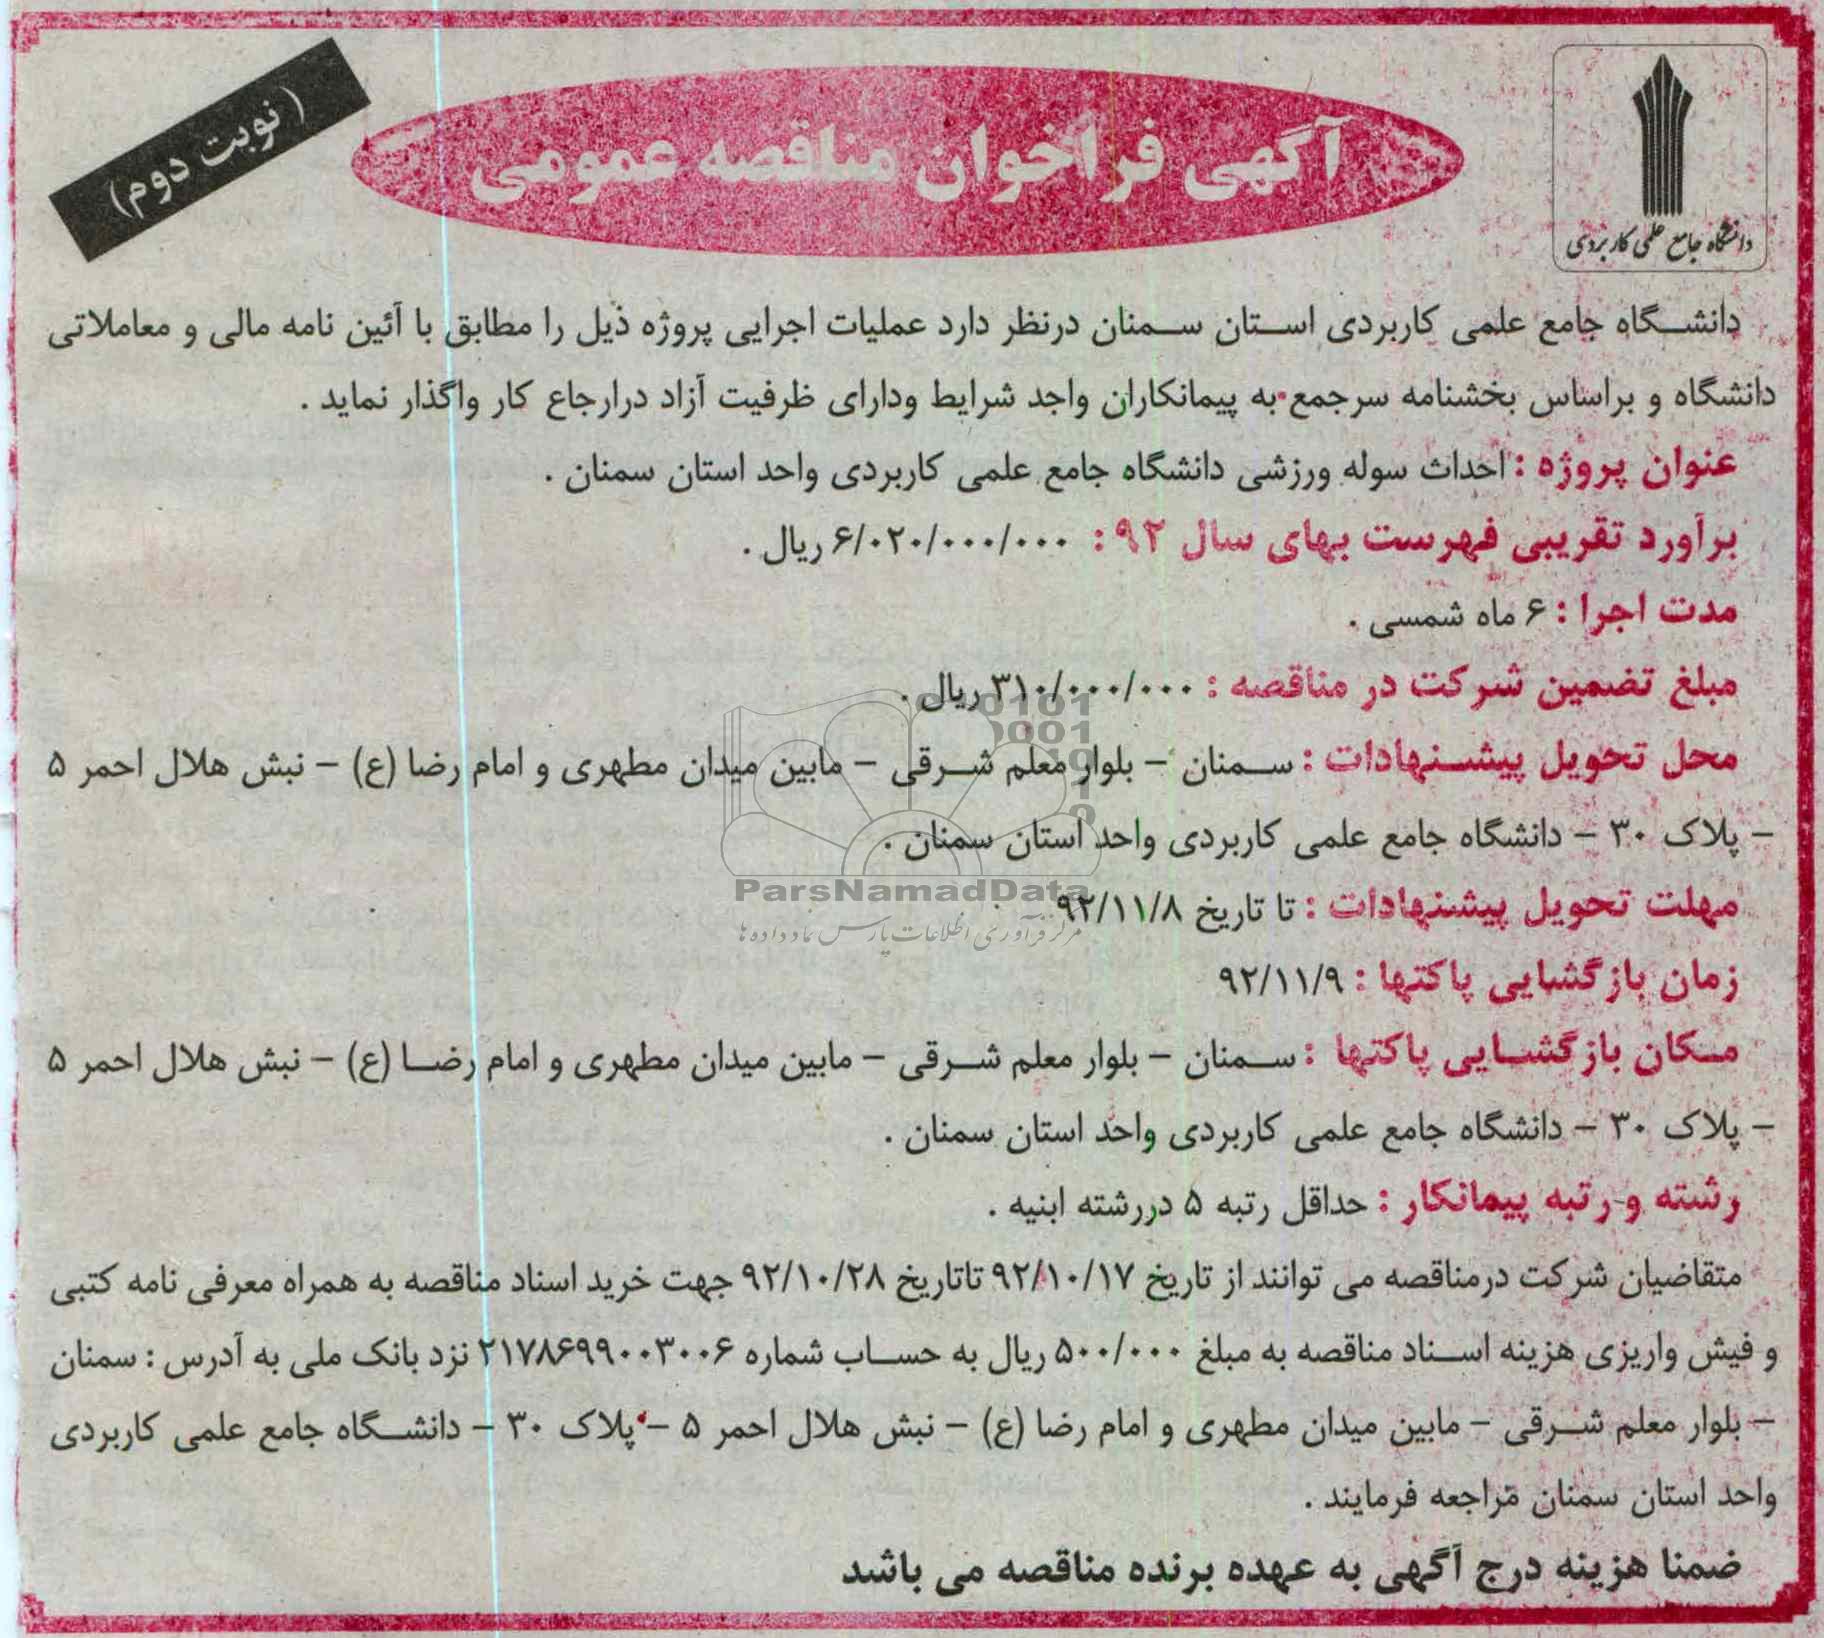 دانشگاه جامع علمی کاربردی
آگهی فراخوان مناقصه عمومی
(نوبت دوم)
دانشگاه جامع علمی کاربردی استان سمنان درنظر دارد عملیات اجرایی پروژه ذیل را مطابق با آئین نامه مالی و معاملاتی
دانشگاه و براساس بخشنامه سرجمع به پیمانکاران واجد شرایط ودارای ظرفیت آزاد درارجاع کار واگذار نماید .
عنوان پروژه : احداث سوله ورزشی دانشگاه جامع علمی کاربردی واحد استان سمنان .
برآورد تقریبی فهرست بهای سال ۹۲ : ۶/۰۲۰/۰۰۰/۰۰۰ ریال .
مدت اجرا : ۶ ماه شمسی .
مبلغ تضمین شرکت در مناقصه : ۳۱۰/۰۰۰/۰۰۰ ریال .
محل تحویل پیشنهادات : سمنان – بلوار معلم شرقی – مابین میدان مطهری و امام رضا (ع) – نبش هلال احمر ۵
– پلاک ۳۰ – دانشگاه جامع علمی کاربردی واحد استان سمنان .
ParsNamadData
مهلت تحویل پیشنهادات : تا تاریخ ۹۲/۱۱/۸
مرکز فرآوری اطلاعات پارس نماد داده ها
زمان بازگشایی پاکتها : ۹۲/۱۱/۹
مکان بازگشایی پاکتها : سمنان – بلوار معلم شرقی – مابین میدان مطهری و امام رضا (ع) – نبش هلال احمر ۵
– پلاک ۳۰ – دانشگاه جامع علمی کاربردی واحد استان سمنان .
رشته و رتبه پیمانکار : حداقل رتبه ۵ دررشته ابنیه .
متقاضیان شرکت درمناقصه می توانند از تاریخ ۹۲/۱۰/۱۷ تاتاریخ ۹۲/۱۰/۲۸ جهت خرید اسناد مناقصه به همراه معرفی نامه کتبی
و فیش واریزی هزینه اسناد مناقصه به مبلغ ۵۰۰/۰۰۰ ریال به حساب شماره ۲۱۷۸۶۹۹۰۰۳۰۰۶ نزد بانک ملی به آدرس : سمنان
– بلوار معلم شرقی – مابین میدان مطهری و امام رضا (ع) – نبش هلال احمر ۵ – پلاک ۳۰ – دانشگاه جامع علمی کاربردی
واحد استان سمنان مراجعه فرمایند .
ضمنا هزینه درج آگهی به عهده برنده مناقصه می باشد